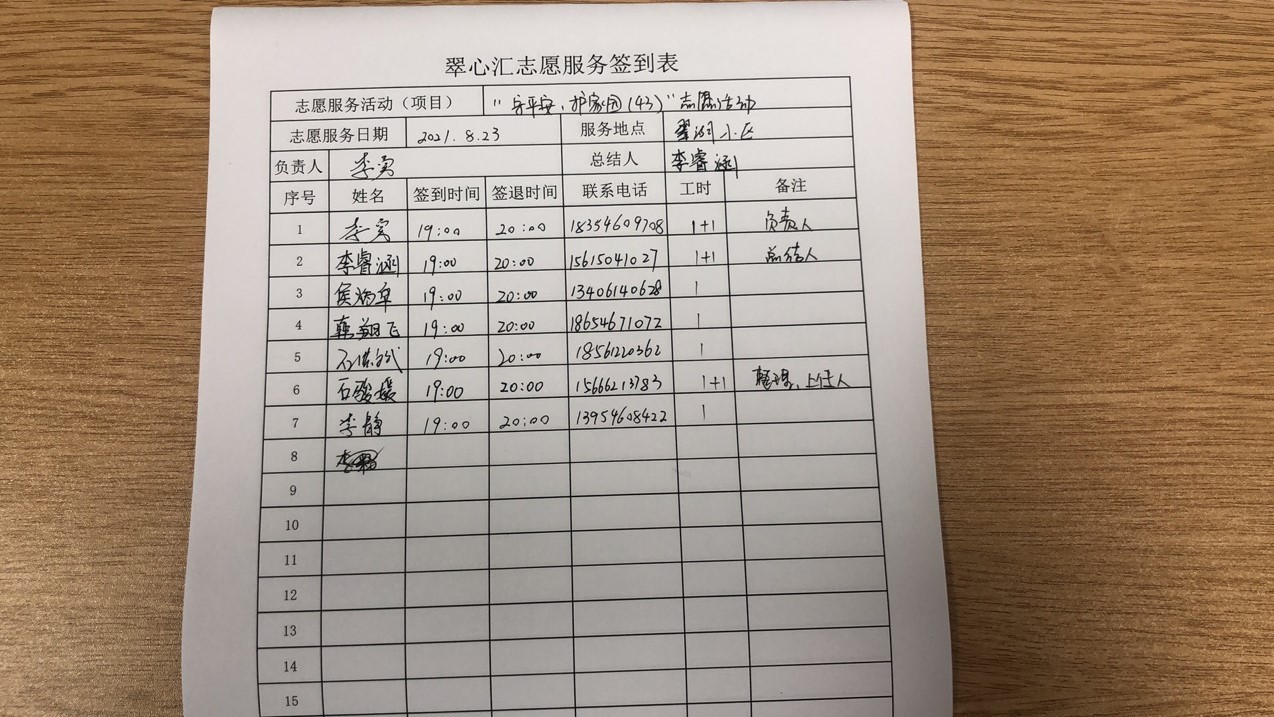 翠心汇志愿服务签到表
志愿服务活动（项目） “守平安，护家园(43)”志愿活动
志愿服务日期 2021.8.23 服务地点 翠湖小区
负责人 李寅 总结人 李睿涵
序号 姓名 签到时间 签退时间 联系电话 工时 备注
1 李寅 19:00 20:00 18354609708 1+1 负责人
2 李睿涵 19:00 20:00 15615041027 1+1 总结人
3 19:00 20:00 13406140628 1
4 19:00 20:00 18654671072 1
5 19:00 20:00 18561220362 1
6 19:00 20:00 15666213783 1+1 整理、上传人
7 李静 19:00 20:00 13954608422 1
8
9
10
11
12
13
14
15